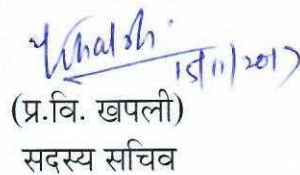 15/11/2017
(प्र.वि. खपली)
सदस्य सचिव